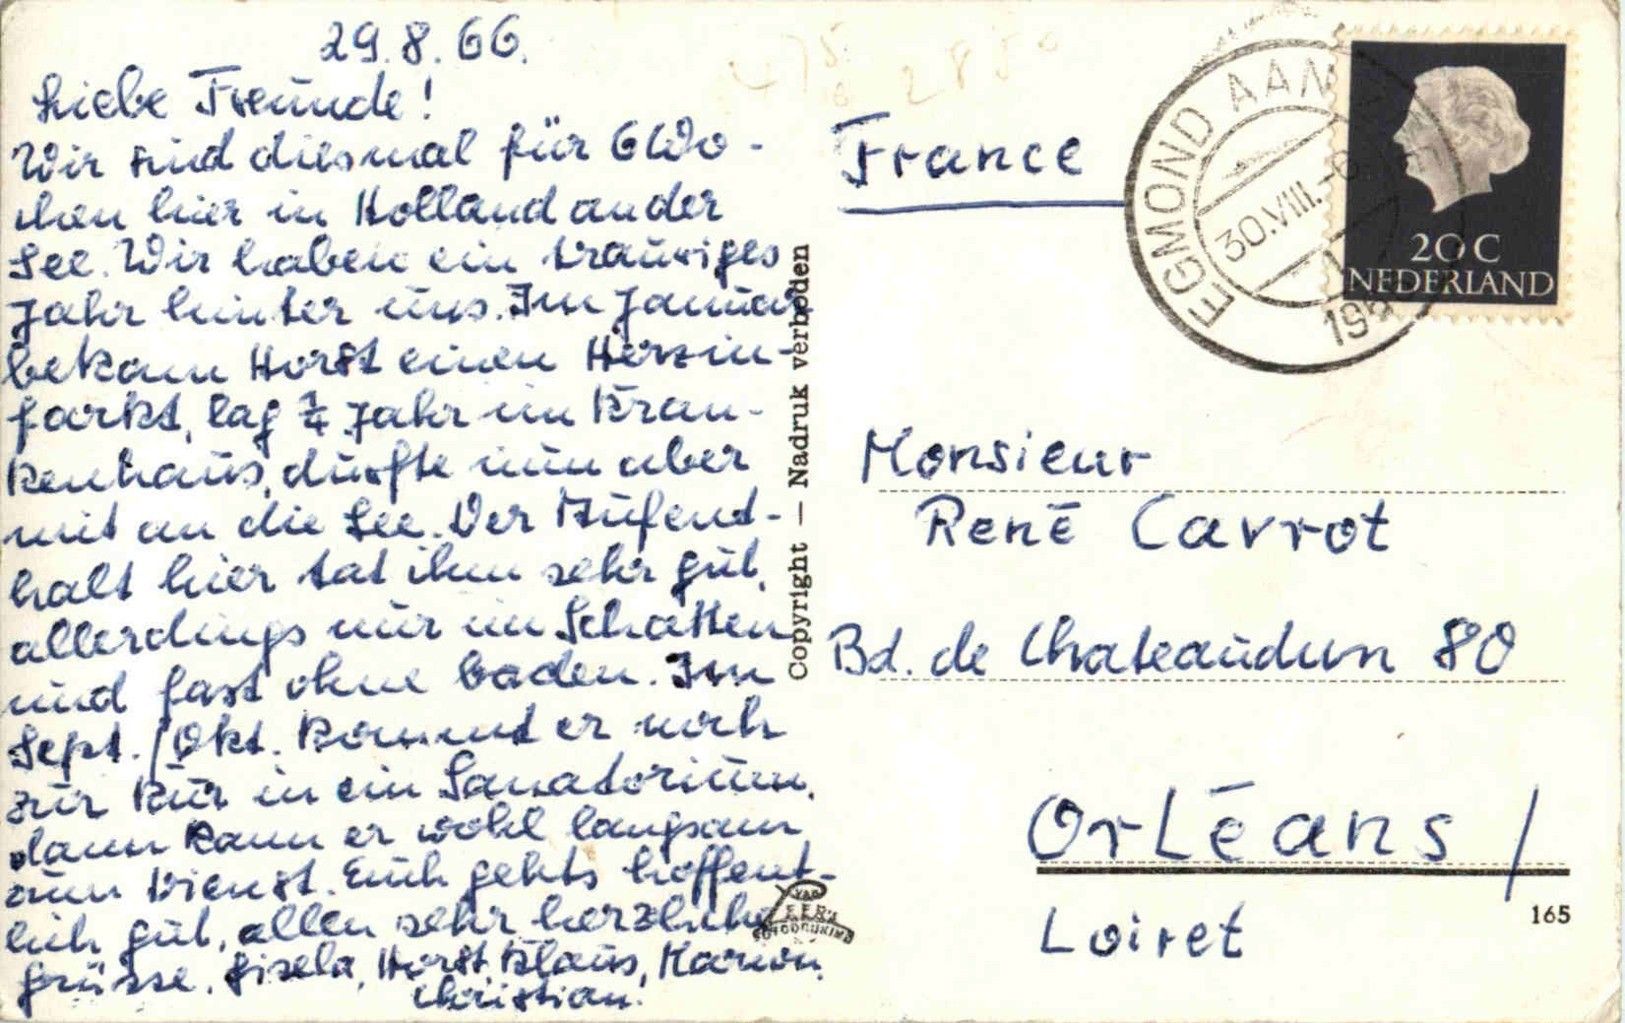 29.8.66.
Liebe Freunde!
Wir sind diesmal für 6 Wo-
chen hier in Holland an der
See. Wir haben ein trauriges
Jahr hinter uns. Im Januar
bekam Horst einen Herzin-
farkt, lag ¼ Jahr im Kran-
kenhaus, durfte nun aber
mit an die See. Der Aufent-
halt hier tat ihm sehr gut,
allerdings nur im Schatten
und fast ohne baden. Im
Sept./Okt. kommt er noch
zur Kur in ein Sanatorium,
dann kann er wohl langsam
zum Dienst. Euch gehts hoffent-
lich gut, allen sehr herzliche
Grüsse. Gisela, Horst, Klaus, Marion,
Christian.
Copyright — Nadruk verboden
France
EGMOND AAN
30.VIII.
20 C
NEDERLAND
Monsieur
René Cavrot
Bd. de Chateaudun 80
Orléans /
Loiret
165